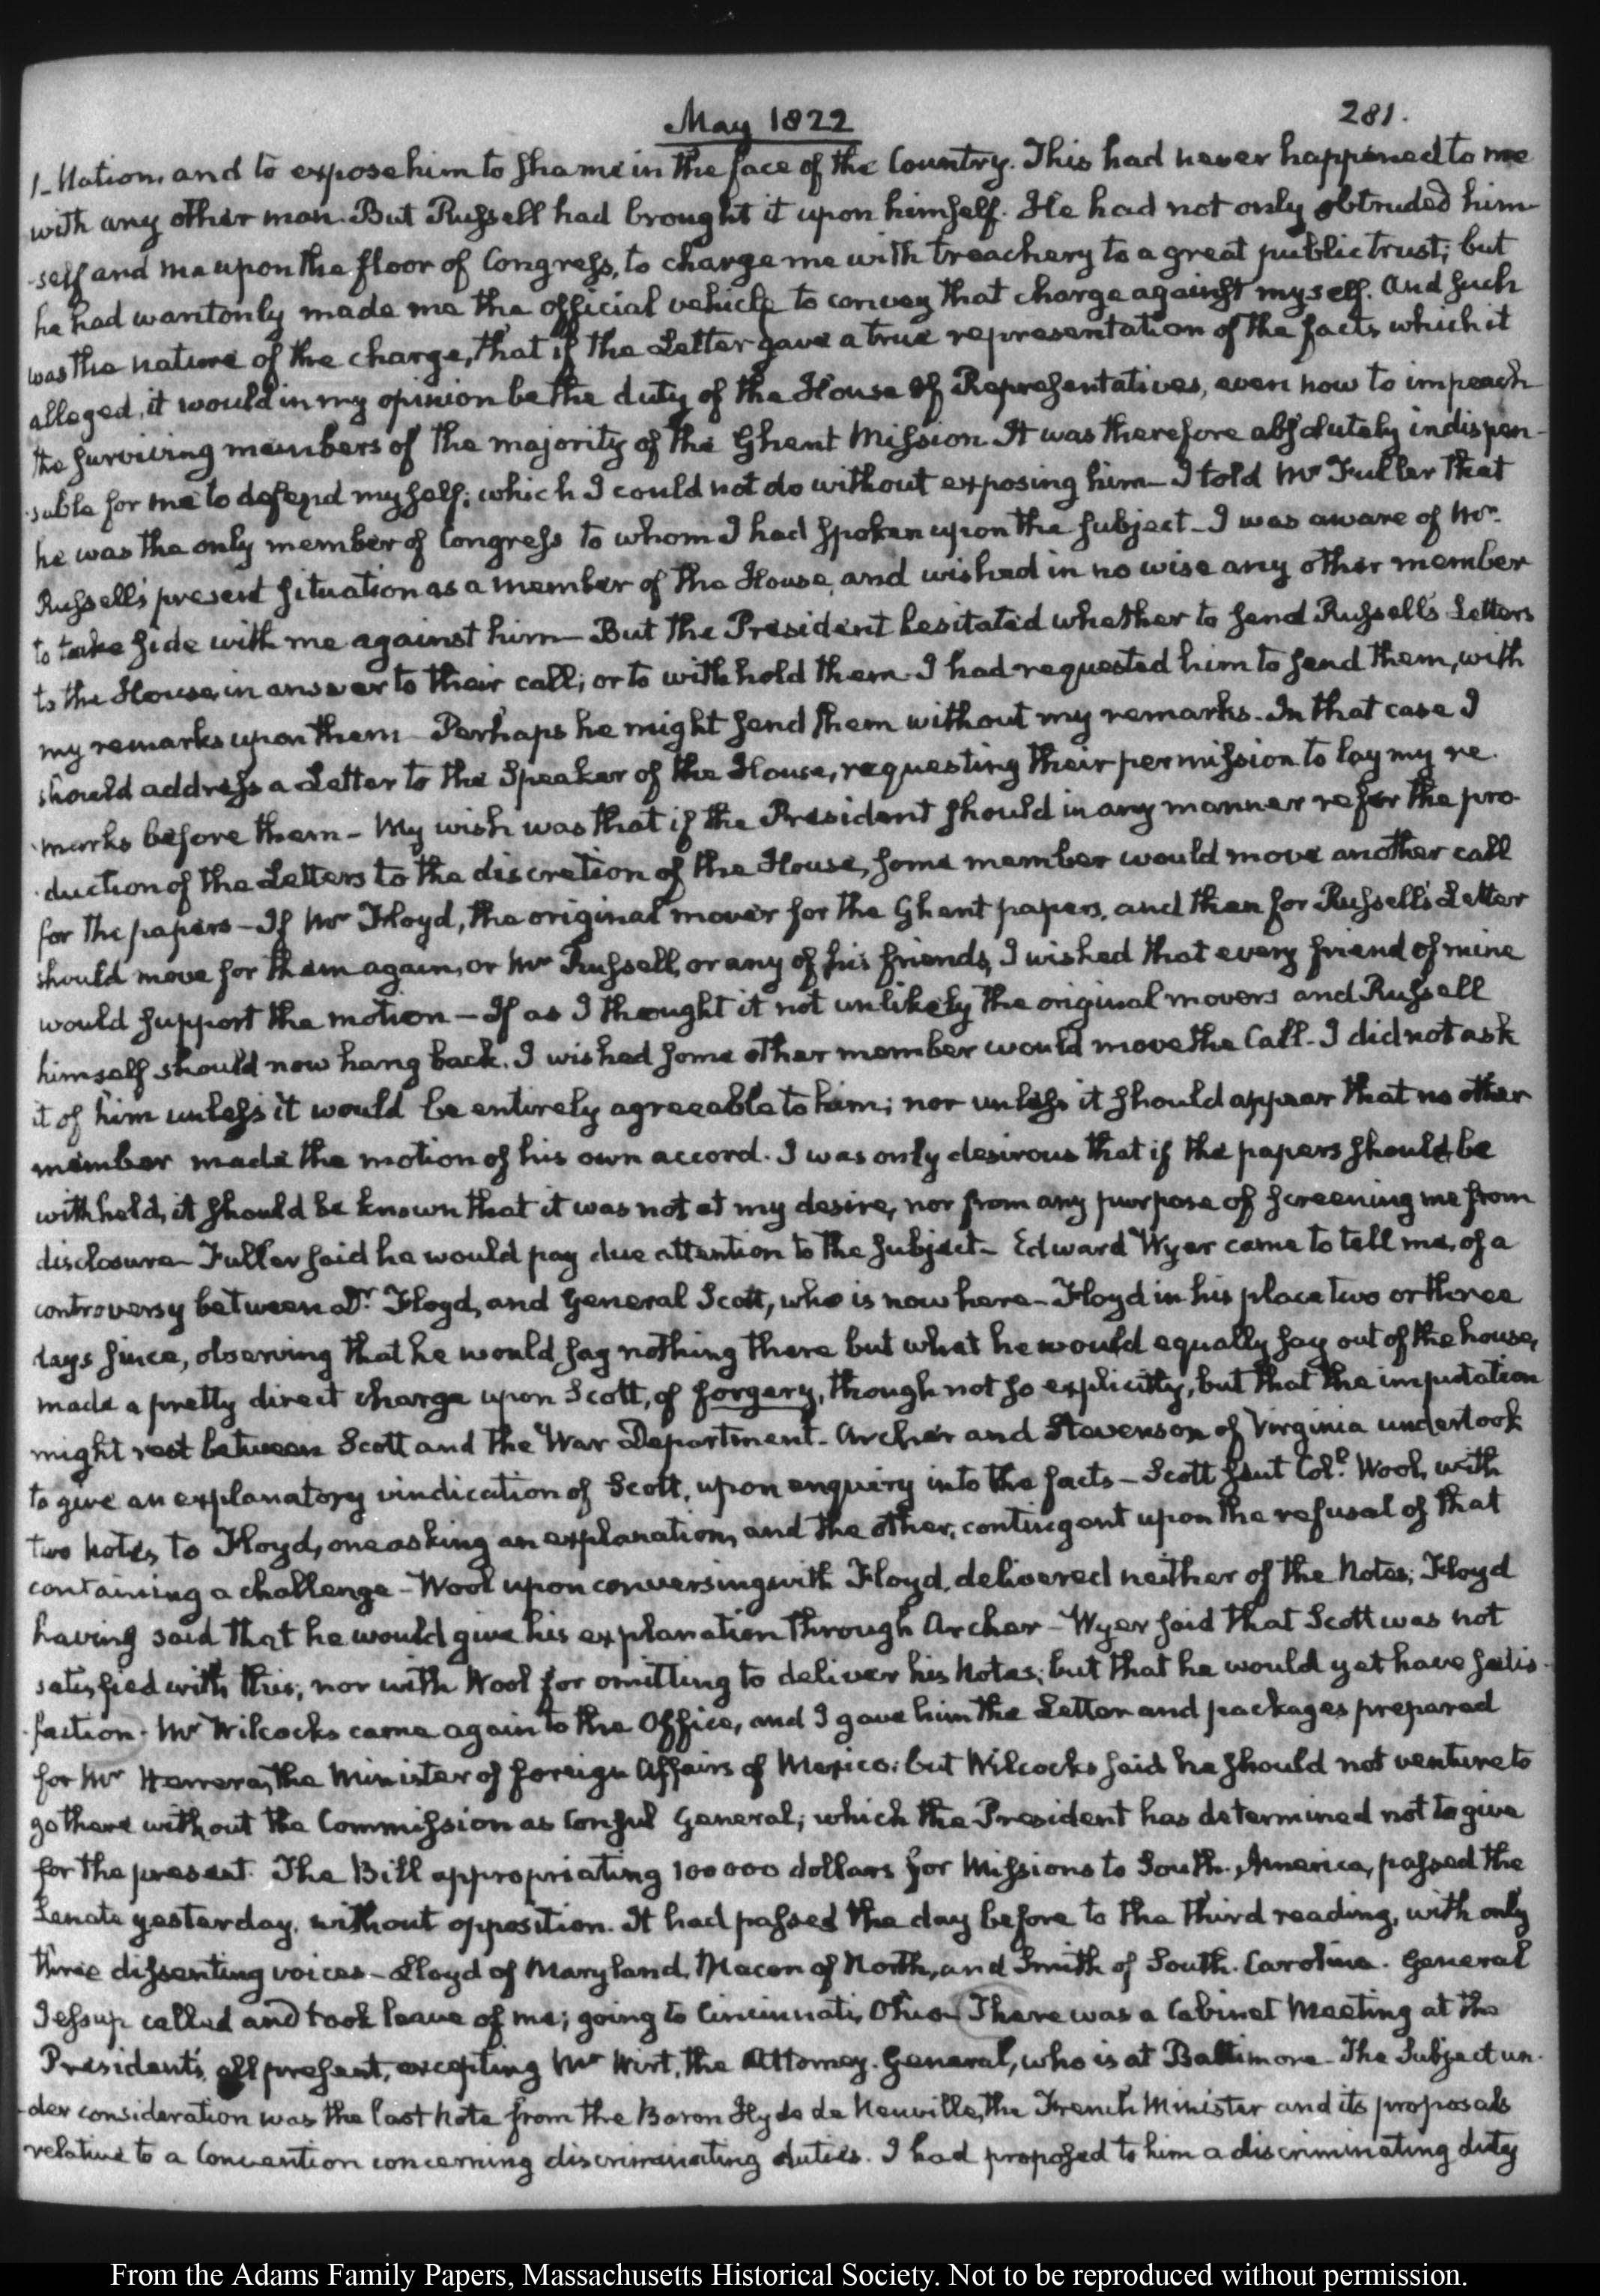 May 1822
281.
1_ Nation, and to expose him to shame in the face of the Country. This had never happened to me
with any other man. But Russell had brought it upon himself. He had not only obtruded him-
-self and me upon the floor of Congress, to charge me with treachery to a great public trust; but
he had wantonly made me the official vehicle to convey that charge against myself. And such
was the nature of the charge, that if the Letter gave a true representation of the facts which it
alleged, it would in my opinion be the duty of the House of Representatives, even now to impeach
the surviving members of the majority of the Ghent Mission. It was therefore absolutely indispen-
-sable for me to defend myself; which I could not do without exposing him_ I told Mr Fuller that
he was the only member of Congress to whom I had spoken upon the subject_ I was aware of Mr.
Russell's present situation as a member of the House, and wished in no wise any other member
to take side with me against him_ But the President hesitated whether to send Russell's Letters
to the House, in answer to their call; or to withhold them. I had requested him to send them, with
my remarks upon them_ Perhaps he might send them without my remarks. In that case I
should address a Letter to the Speaker of the House, requesting their permission to lay my re-
-marks before them_ My wish was that if the President should in any manner refer the pro-
-duction of the Letters to the discretion of the House, some member would move another call
for the papers_ If Mr Floyd, the original mover for the Ghent papers, and then for Russell's Letter
should move for them again, or Mr Russell, or any of his friends, I wished that every friend of mine
would support the motion_ If as I thought it not unlikely the original movers and Russell
himself should now hang back, I wished some other member would move the Call_ I did not ask
it of him unless it would be entirely agreeable to him; nor unless it should appear that no other
member made the motion of his own accord. I was only desirous that if the papers should be
withheld, it should be known that it was not at my desire, nor from any purpose of screening me from
disclosure_ Fuller said he would pay due attention to the subject_ Edward Wyer came to tell me, of a
controversy between Dr. Floyd, and General Scott, who is now here_ Floyd in his place two or three
days since, observing that he would say nothing there but what he would equally say out of the house,
made a pretty direct charge upon Scott, of forgery, though not so explicitly, but that the imputation
might rest between Scott and the War Department_ Archer and Stevenson of Virginia undertook
to give an explanatory vindication of Scott, upon enquiry into the facts_ Scott sent Col. Wool, with
two Notes, to Floyd, one asking an explanation, and the other, contingent upon the refusal of that
containing a challenge_ Wool upon conversing with Floyd, delivered neither of the Notes; Floyd
having said that he would give his explanation through Archer_ Wyer said that Scott was not
satisfied with this; nor with Wool for omitting to deliver his Notes; but that he would yet have satis-
-faction. Mr Wilcocks came again to the Office, and I gave him the Letter and packages prepared
for Mr Herrera, the Minister of foreign Affairs of Mexico; but Wilcocks said he should not venture to
go there without the Commission as Consul General; which the President has determined not to give
for the present. The Bill appropriating 100 000 dollars for Missions to South. America, passed the
Senate yesterday, without opposition. It had passed the day before to the third reading, with only
three dissenting voices_ Lloyd of Maryland, Macon of North, and Smith of South. Carolina. General
Jessup called and took leave of me; going to Cincinnati, Ohio_ There was a Cabinet Meeting at the
President's, all present, excepting Mr Wirt, the Attorney. General, who is at Baltimore_ The Subject un-
-der consideration was the last Note from the Baron Hyde de Neuville, the French Minister and its proposals
relative to a Convention concerning discriminating duties. I had proposed to him a discriminating duty
From the Adams Family Papers, Massachusetts Historical Society. Not to be reproduced without permission.